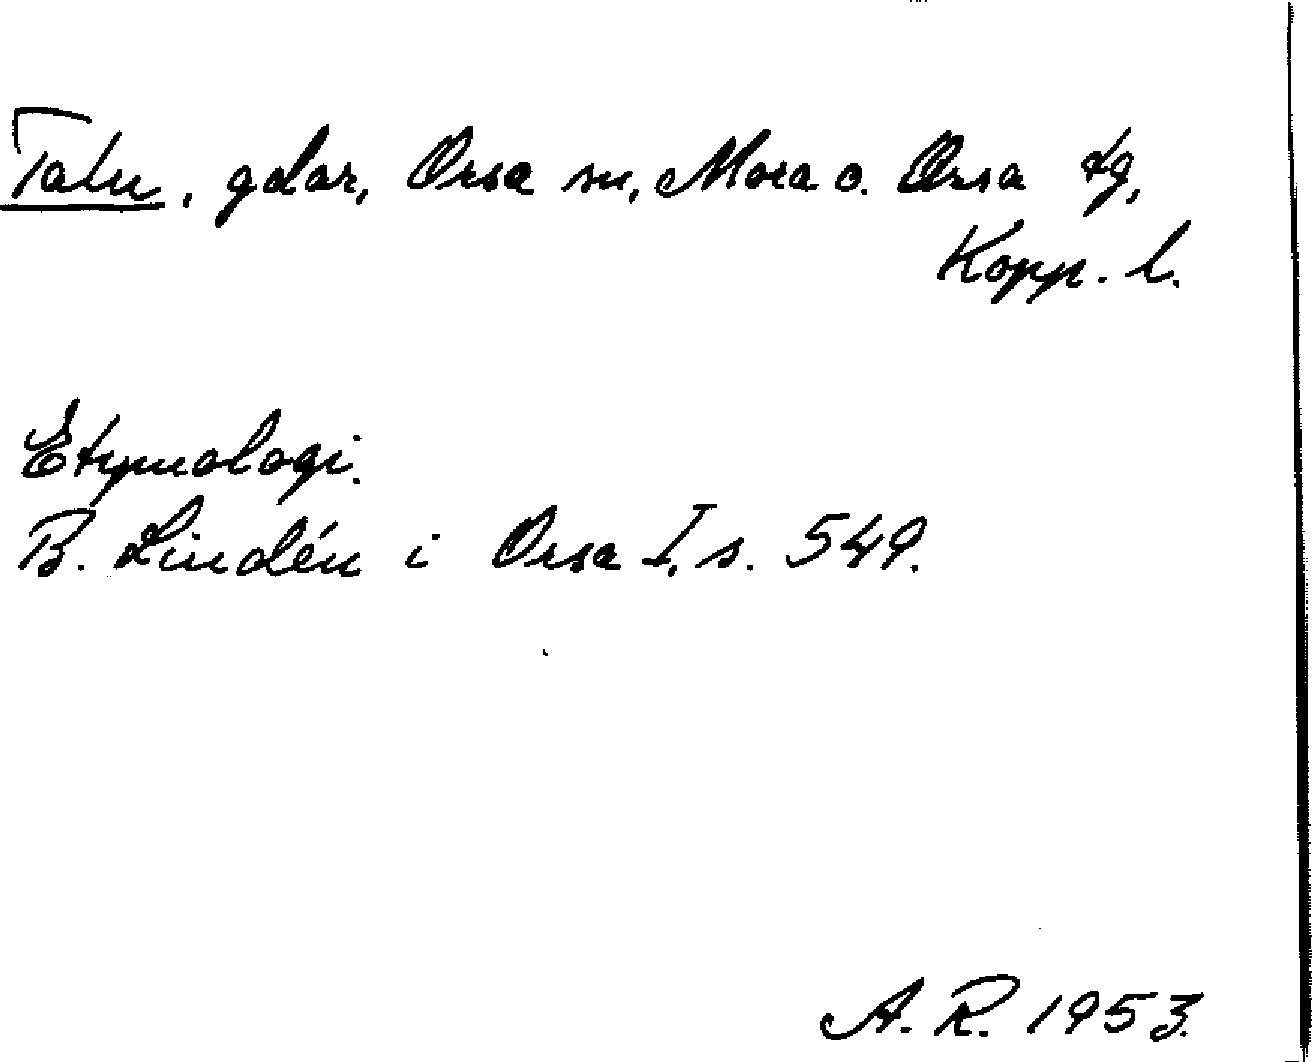 Tatu, gdar, Orsa sn, Mora o. Orsa tg,
Kopp. l.
Etymologi.
B. Lindén i Orsa I, s. 549.
A. R. 1953.